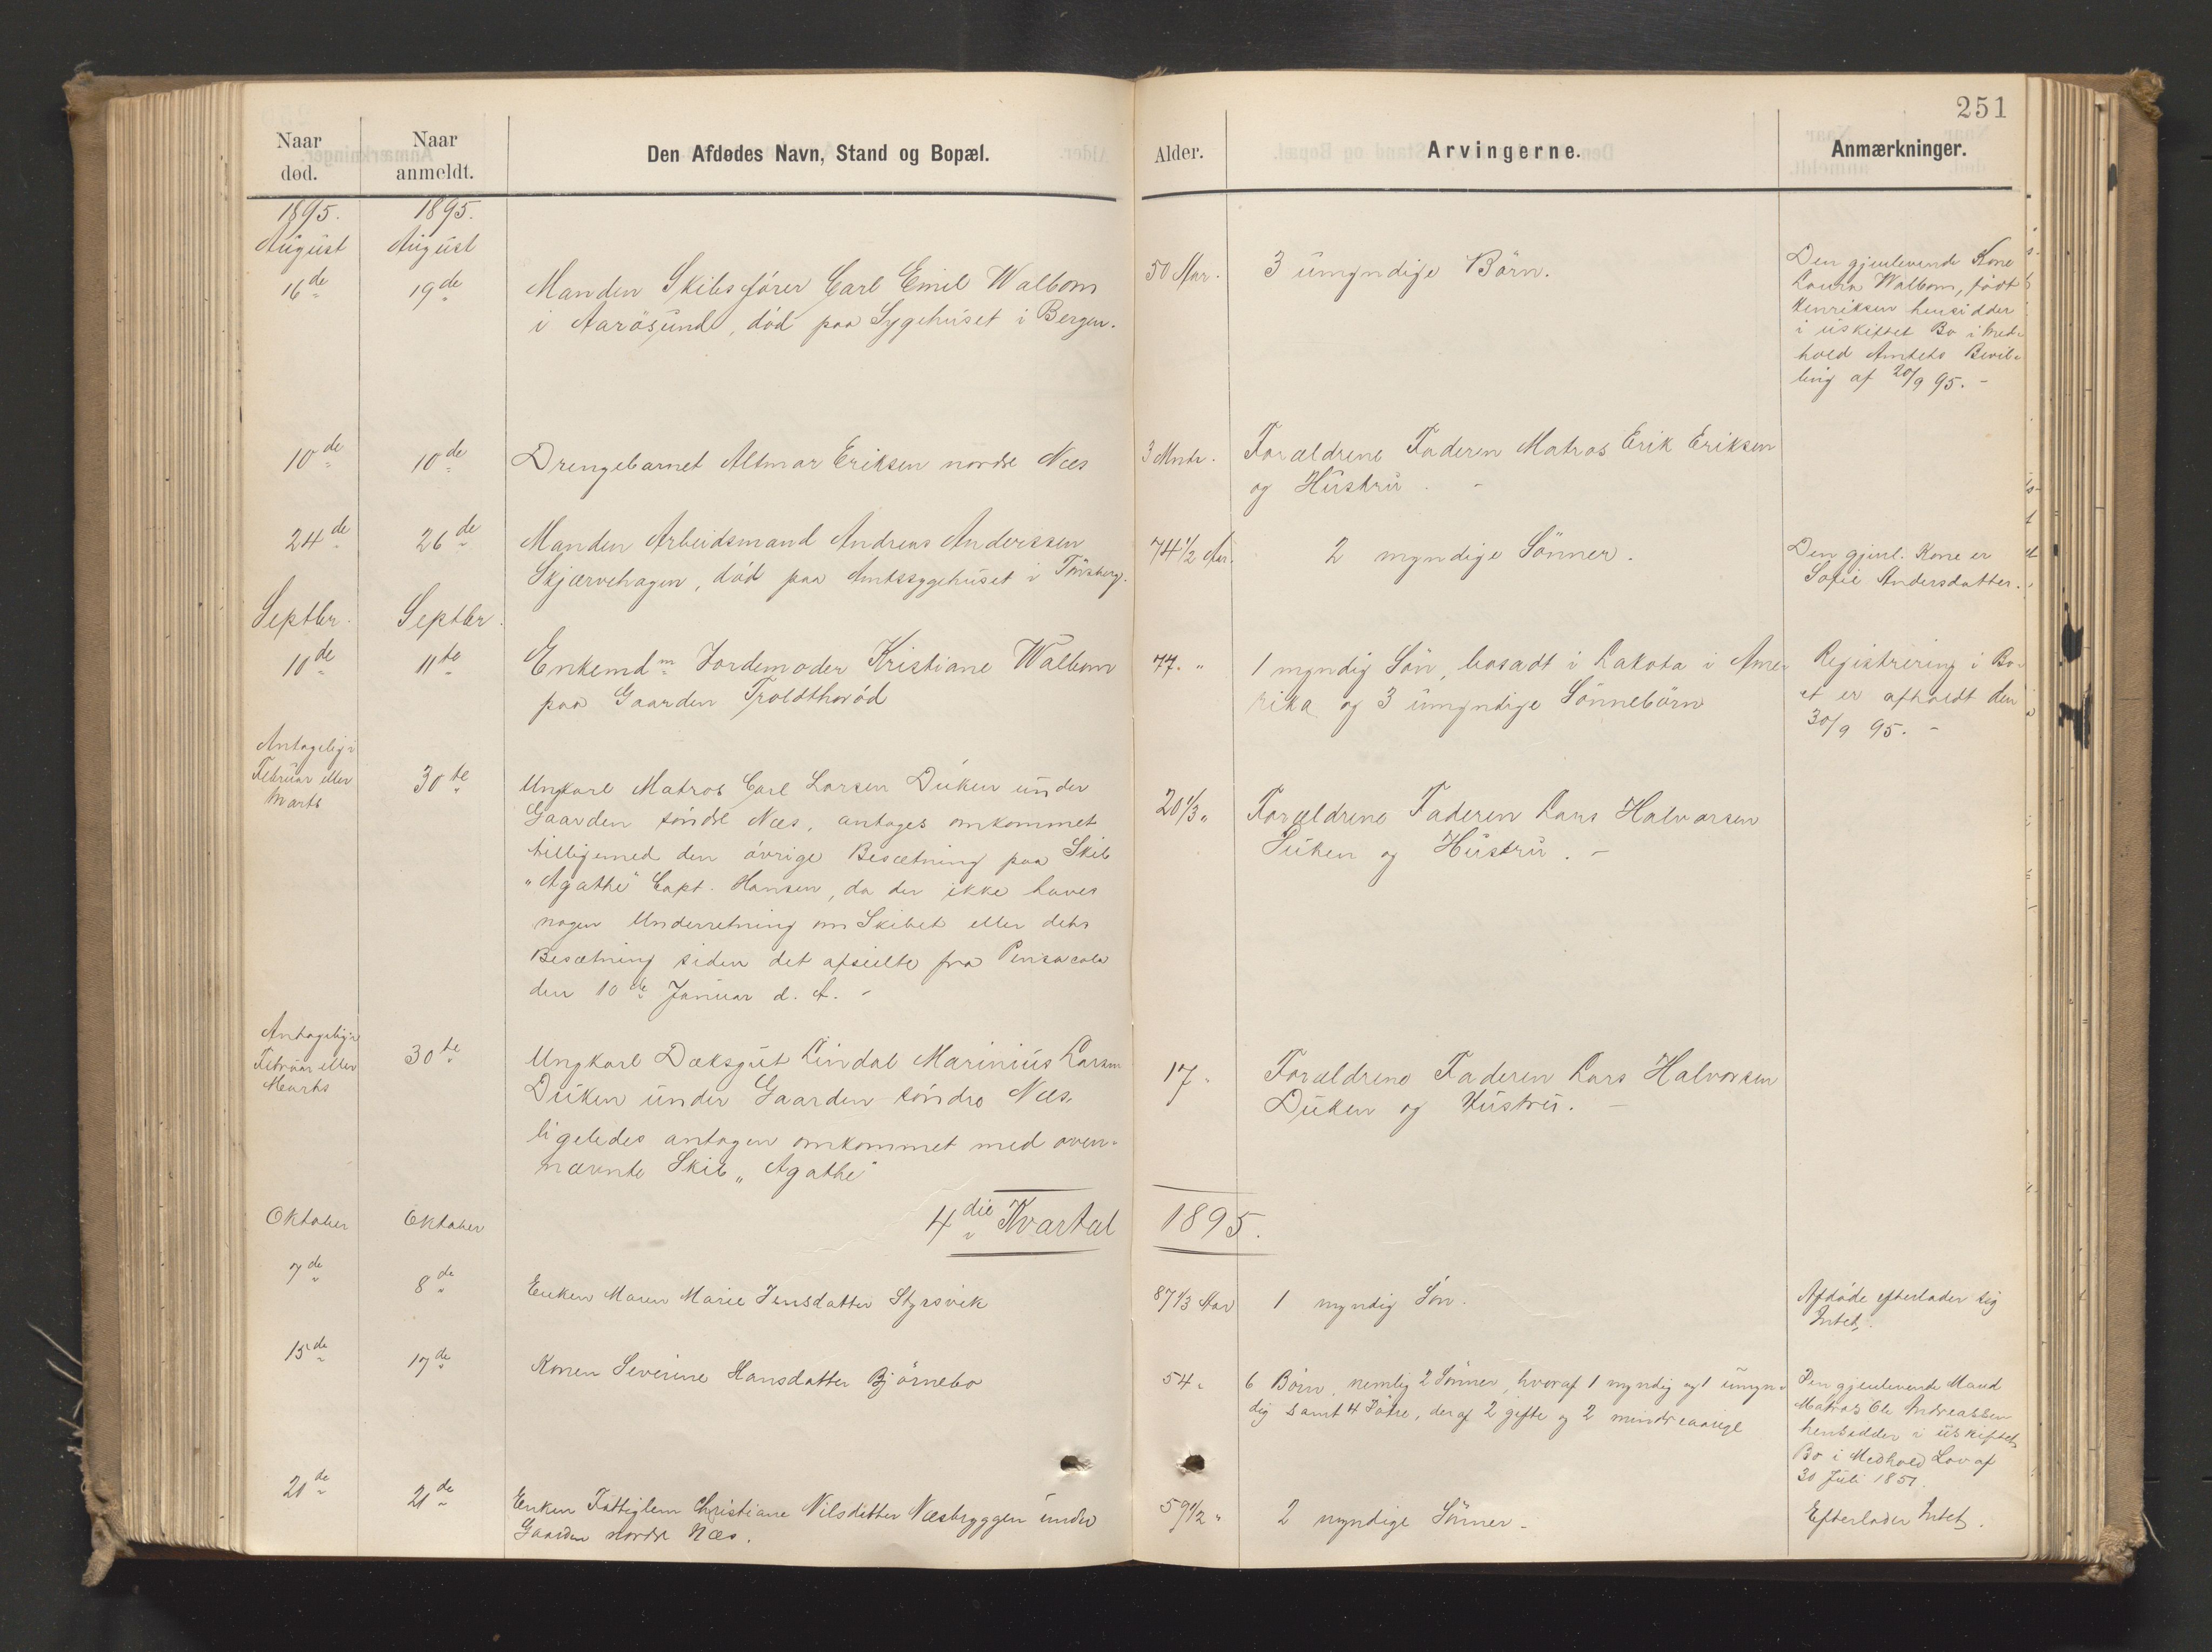 251
Naar død.
Naar anmeldt.
Den Afdødes Navn, Stand og Bopæl.
Alder.
Arvingerne.
Anmærkninger.
1895. 1895.
August August
16de 19de
Manden Skibsfører Carl Emil Walbom
i Aarøsund, død paa Sygehuset i Bergen.
50 Aar.
3 umyndige Børn.
Den gjenlevende Kone
Laura Walbom, født
Henriksen hensidder
i uskiftet Bo i Med-
hold Amtets Bevil-
ling af 20/9 95. -
10de 10de
Drengebarnet Altmar Eriksen nordre Næs
3 Mndr.
Forældrene Faderen Matros Erik Eriksen
og Hustru. -
24de 26de
Manden Arbeidsmand Andreas Anderssen
Skjærvehagen, død paa Amtssygehuset i Tønsberg.
74 1/2 Aar.
2 myndige Sønner.
Den gjenl. Kone er
Sofie Andersdatter.
Septbr. Septbr.
10de 11te
Enkemdm Jordemoder Kristiane Walbom
paa Gaarden Troldthvød
77. "
1 myndig Søn, bosadt i Dakota i Ame-
rika og 3 umyndige Sønnebørn
Registrering i Bo-
et er afholdt den
30/9 95. -
Antagelig i
Februar eller
Marts
30te
Ungkarl Matros Carl Larsen Duken under
Gaarden søndre Næs, antages omkommet
tilligemed den øvrige Besætning paa Skib
"Agathe" Capt. Hansen, da der ikke haves
nogen Underretning om Skibet eller dets
Besætning siden det afseilte fra Pensacola
den 10de Januar d. A. -
20 1/3 "
Forældrene Faderen Lars Halvorsen
Duken og Hustru. -
Antagelig i
Februar eller
Marts
30te
Ungkarl Dæksgut Lindal Marinius Larsen
Duken under Gaarden søndre Næs,
ligeledes antagen omkommet med oven-
nævnte Skib "Agathe"
17 "
Forældrene Faderen Lars Halvorsen
Duken og Hustru. -
4die Kvartal 1895.
Oktober Oktober
7de 8de
Enken Maren Marie Jensdatter Styrsvik
87 1/3 Aar
1 myndig Søn.
Afdøde efterlader sig
Intet.
15de 17de
Konen Severine Hansdatter Bjørnebo
54 "
6 Børn, nemlig 2 Sønner, hvoraf 1 myndig og 1 umyn-
dig samt 4 Døtre, deraf 2 gifte og 2 mindreaarige
Den gjenlevende Mand
Matros Ole Andreassen
hensidder i uskiftet
Bo i Medhold Lov af
30 Juli 1851.
21de 21de
Enken Fattiglem Christiane Nilsdatter Næsbryggen under
Gaarden nordre Næs.
59 1/2 "
2 myndige Sønner -
Efterlader Intet.